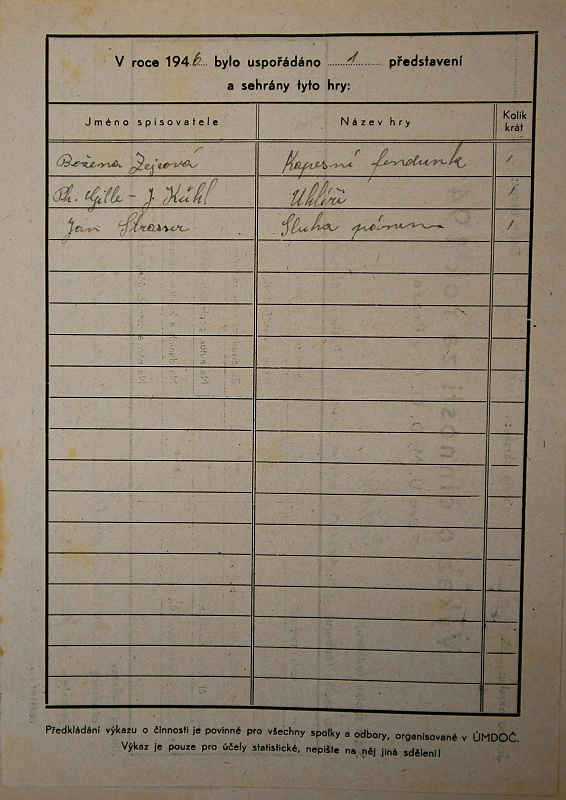 V roce 1946 bylo uspořádáno 1 představení
a sehrány tyto hry:
Jméno spisovatele Název hry Kolik krát
Božena Zejcová Kapesní fendunk 1
Ph. Gille - J. Kühl Uhlíři 1
Jan Strasser Sluha pánem 1
Předkládání výkazu o činnosti je povinné pro všechny spolky a odbory, organisované v ÚMDOČ.
Výkaz je pouze pro účely statistické, nepište na něj jiná sdělení!